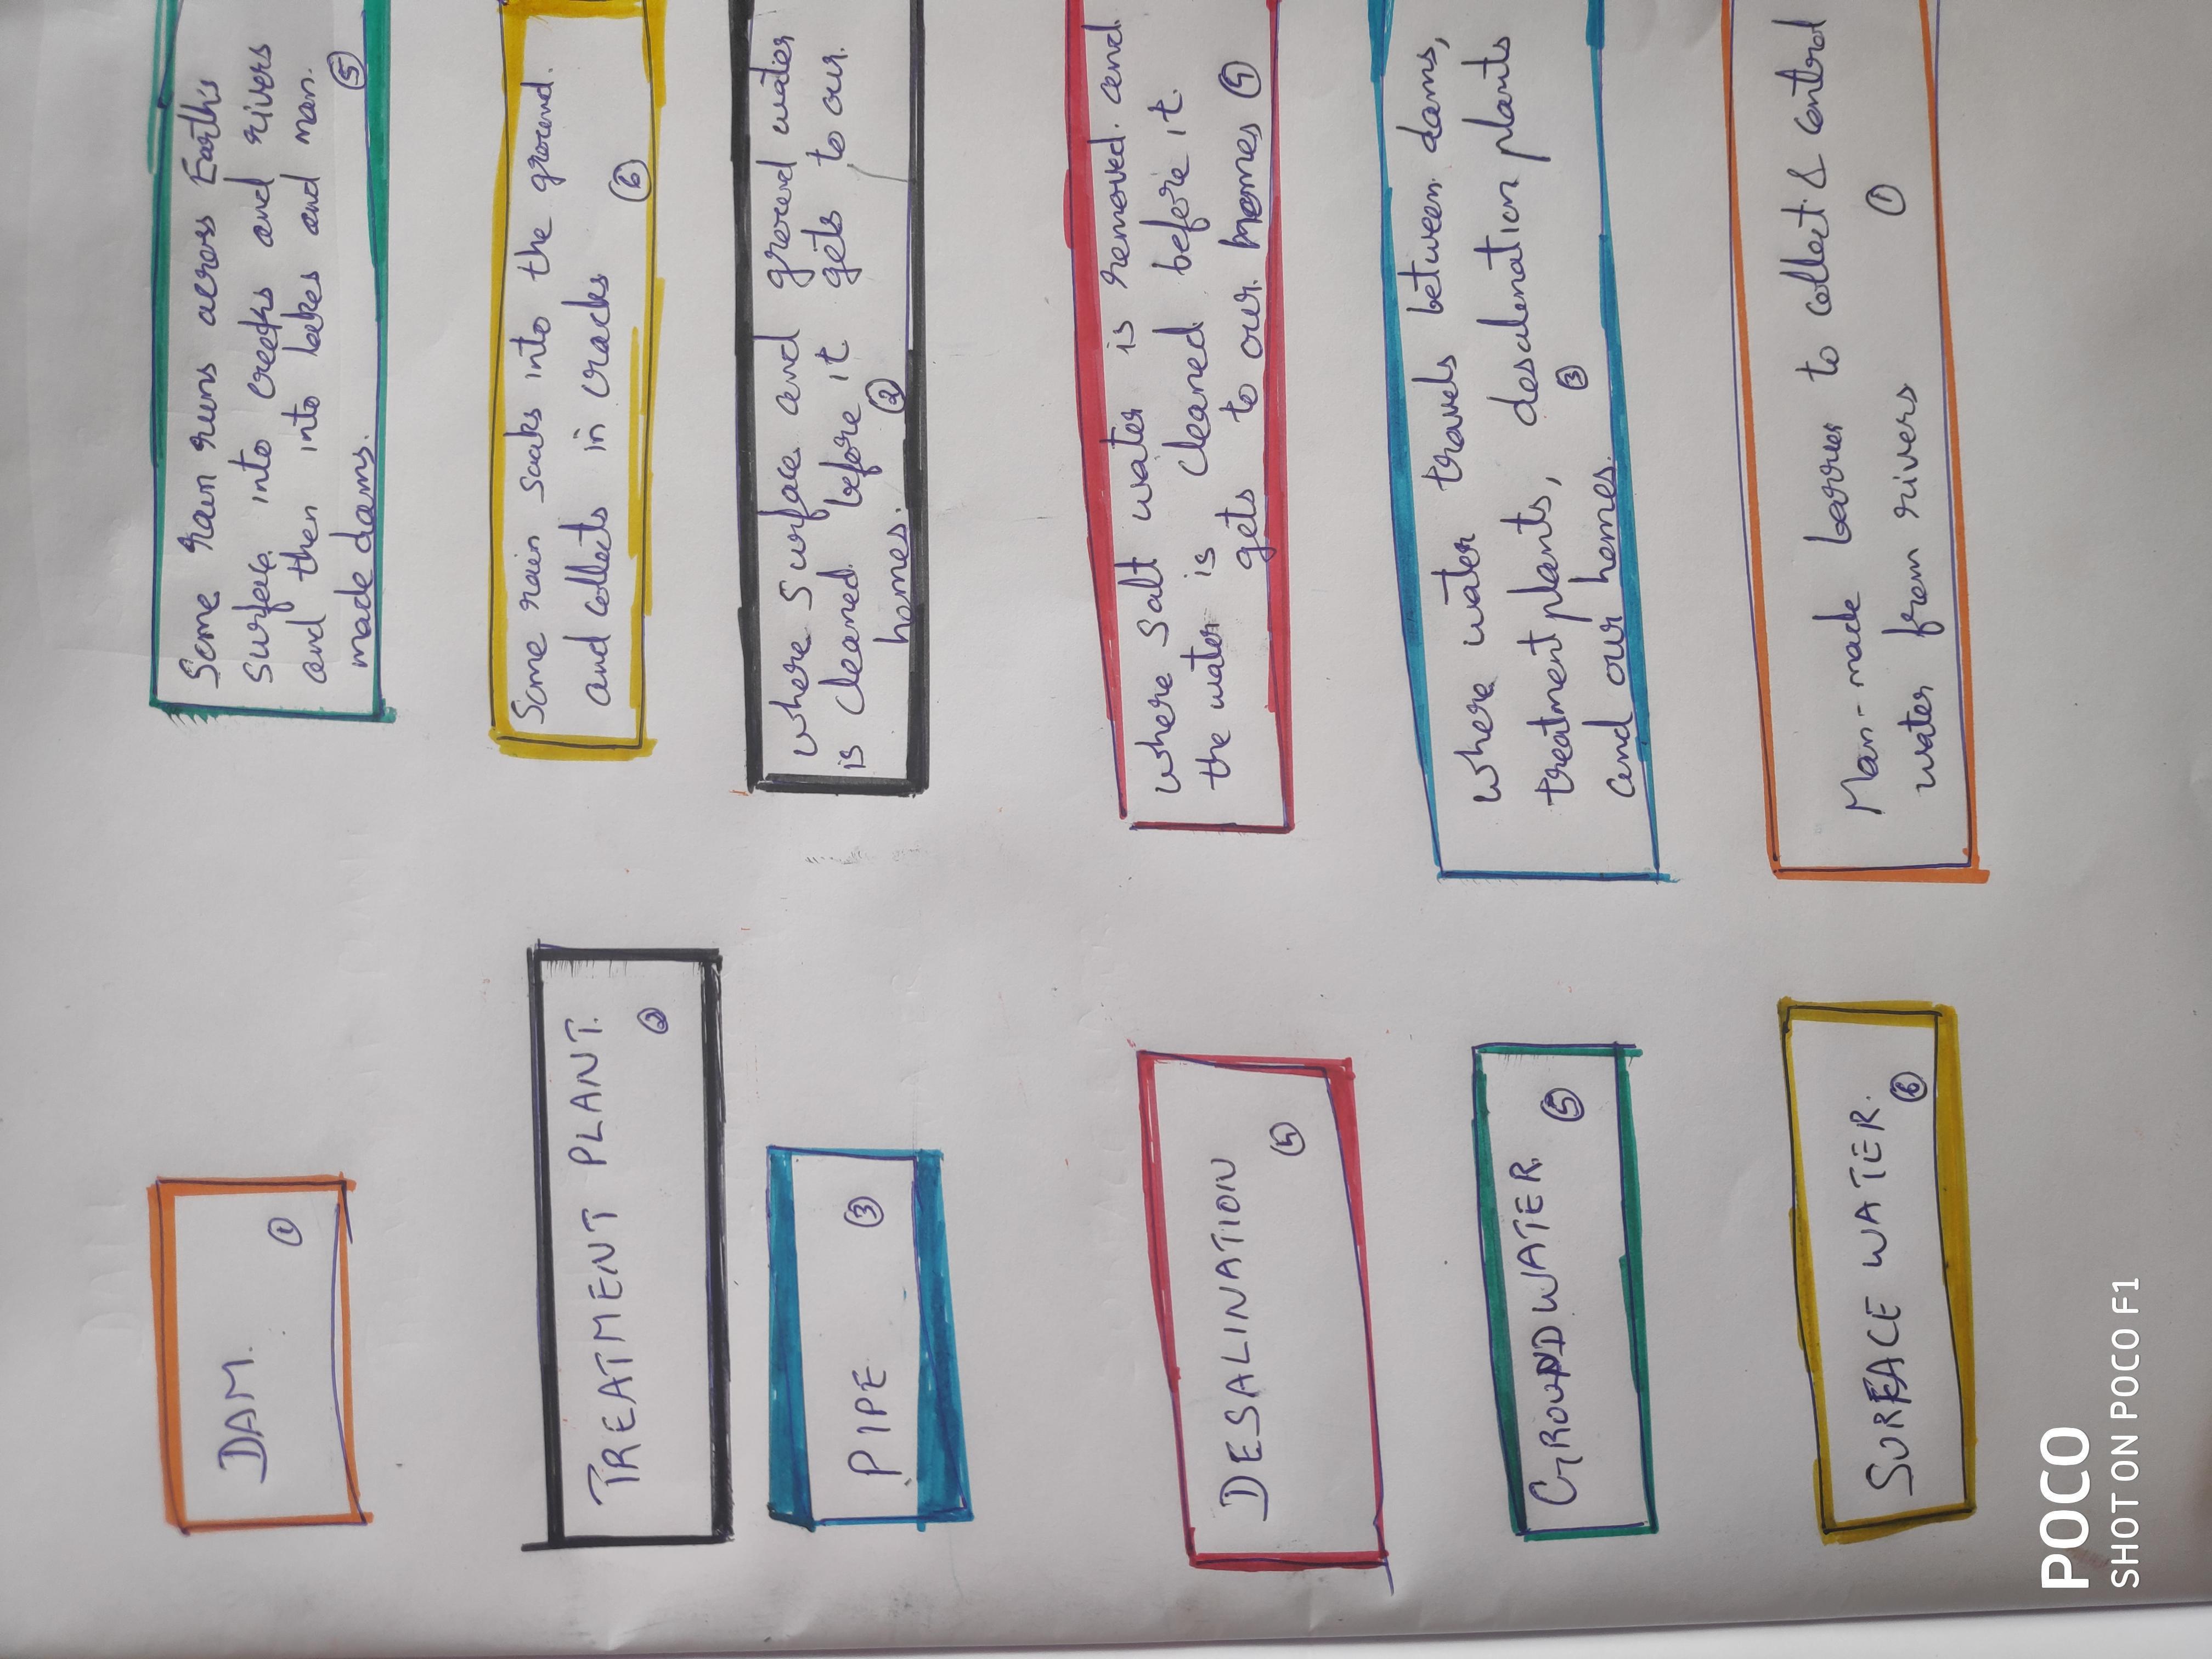 DAM.
①
TREATMENT PLANT.
②
PIPE
③
DESALINATION
④
GROUNDWATER
⑤
SURFACE WATER.
⑥
Some rain runs across Earth's
surface into creeks and rivers
and then into lakes and man.
made dams.
⑤
Some rain soaks into the ground.
and collects in cracks
⑥
where Surface and ground water
is cleaned before it gets to our.
homes.
②
where Salt water is removed. and
the water is cleaned before it.
gets to our homes
④
where water travels between dams,
treatment plants, desalenation plants
and our homes.
③
Man-made barrer to collect & control
water from rivers
①
POCO
SHOT ON POCO F1